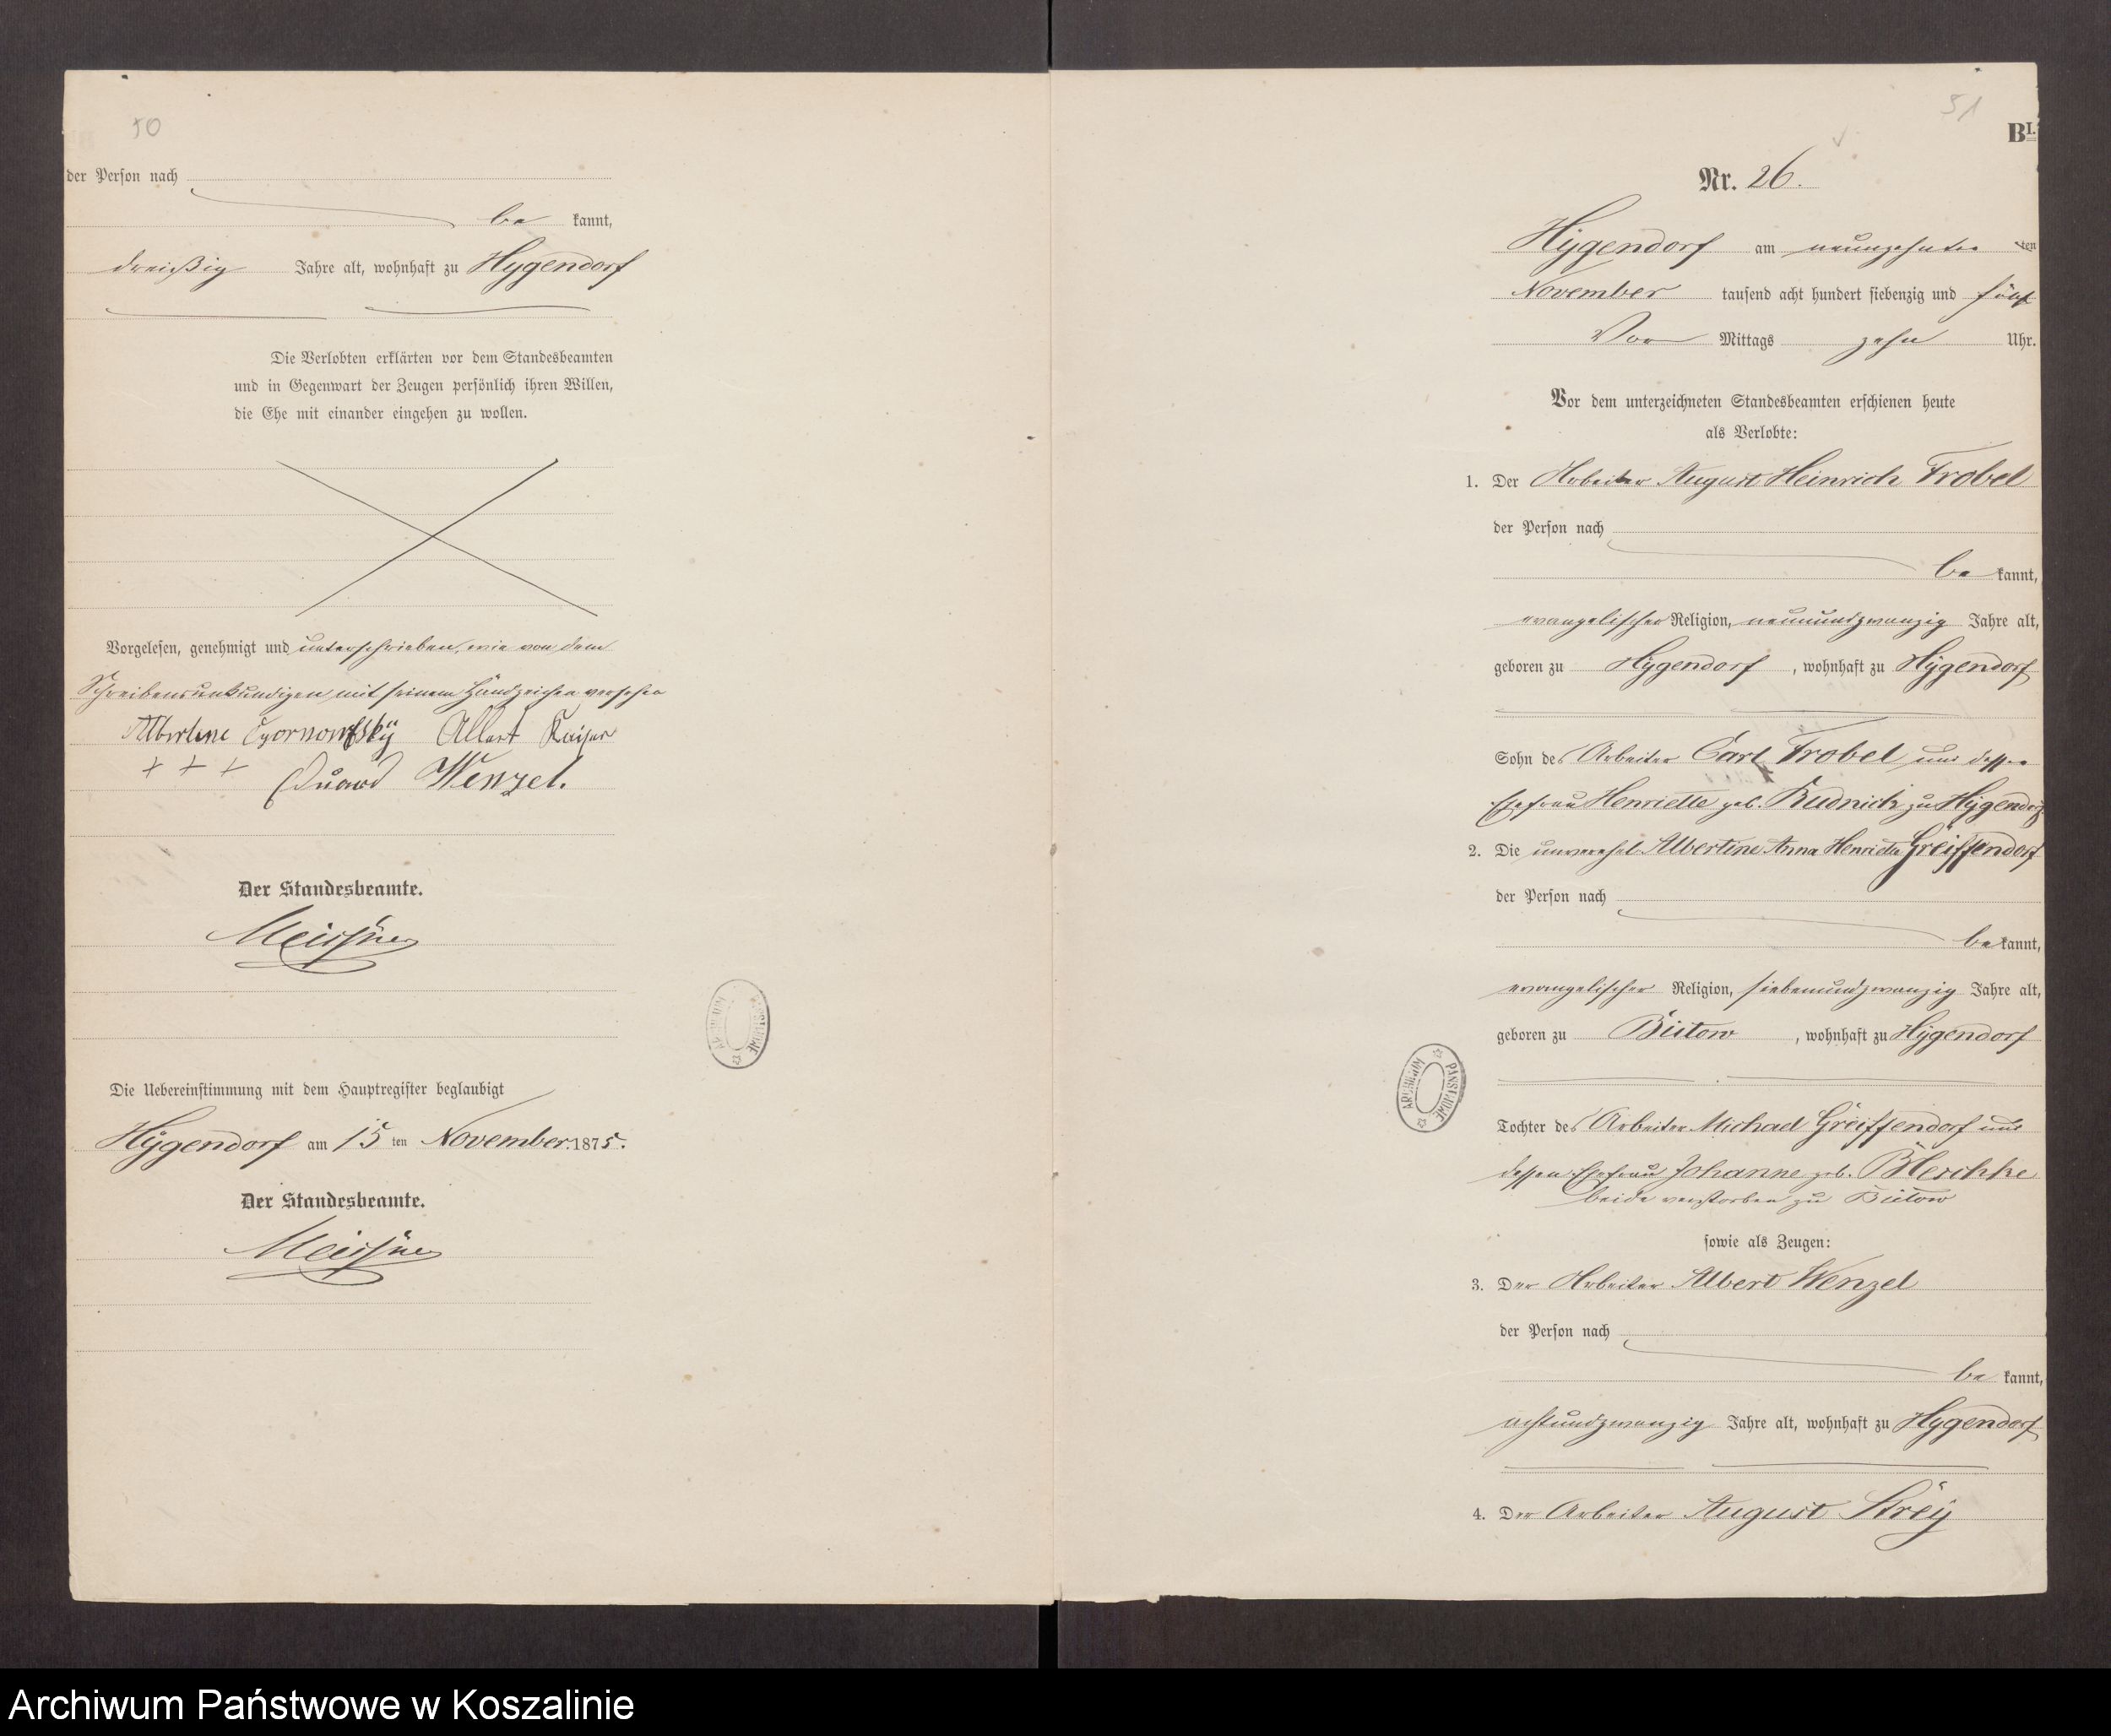 50
der Person nach
be kannt,
dreißig Jahre alt, wohnhaft zu Hygendorf
Die Verlobten erklärten vor dem Standesbeamten
und in Gegenwart der Zeugen persönlich ihren Willen,
die Ehe mit einander eingehen zu wollen.
Vorgelesen, genehmigt und unterschrieben, wie von dem
Schreibensunkundigen mit seinem Handzeichen versehen
Albertine Albert Kaiser
+ + + Eduard Wenzel.
Der Standesbeamte.
Meissner
Die Uebereinstimmung mit dem Hauptregister beglaubigt
Hygendorf am 15 ten November 1875.
Der Standesbeamte.
Meissner
ARCHIWUM PAŃSTWOWE
51
BI.
Nr. 26.
Hygendorf am neunzehnten ten
November tausend acht hundert siebenzig und fünf
Vor Mittags zehn Uhr.
Vor dem unterzeichneten Standesbeamten erschienen heute
als Verlobte:
1. Der Arbeiter August Heinrich Trobel
der Person nach
be kannt,
evangelischer Religion, neunundzwanzig Jahre alt,
geboren zu Hygendorf, wohnhaft zu Hygendorf
Sohn des Arbeiter Carl Trobel und dessen
Ehefrau Henriette geb. Rudnick zu Hygendorf
2. Die unverehel. Albertine Anna Henriette Greiffendorf
der Person nach
be kannt,
evangelischer Religion, siebenundzwanzig Jahre alt,
geboren zu Bütow, wohnhaft zu Hygendorf
Tochter des Arbeiter Michael Greiffendorf und
dessen Ehefrau Johanne geb.
beide verstorben zu Bütow
sowie als Zeugen:
3. Der Arbeiter Albert Wenzel
der Person nach
be kannt,
achtundzwanzig Jahre alt, wohnhaft zu Hygendorf
4. Der Arbeiter August Strey
ARCHIWUM PAŃSTWOWE
Archiwum Państwowe w Koszalinie